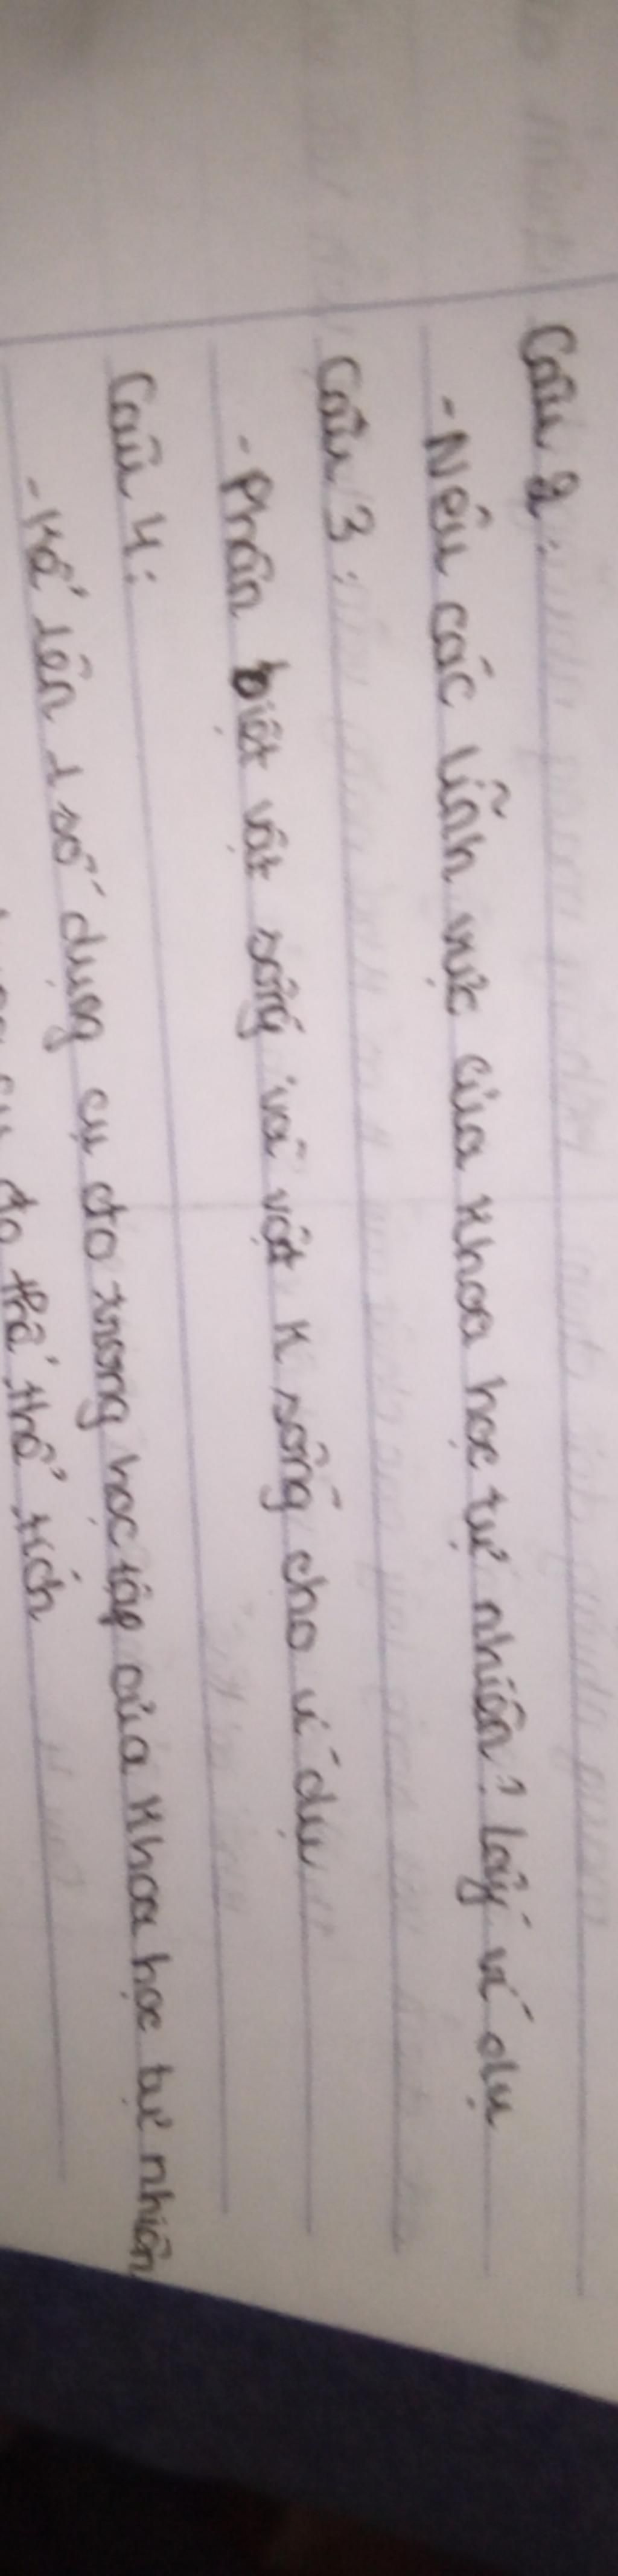 Câu 2:
- Nêu các lĩnh vực của khoa học tự nhiên? lấy ví dụ
Câu 3:
- Phân biệt vật sống và vật k sống cho ví dụ
Câu 4:
- Kể tên 1 số dụng cụ đo trong học tập của khoa học tự nhiên
đo thể thể tích